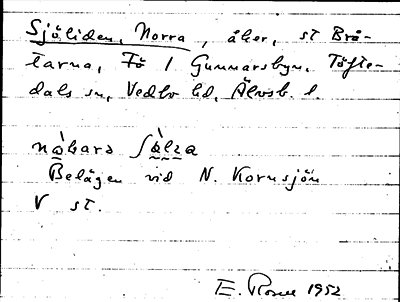 Sjöliden, Norra, åker, st Brå-
tarna, Fö / Gunnarsbyn, Töfte-
dals sn, Vedbo hd, Älvsb. l.
Belägen vid N. Kornsjön
V st.
E. 1952